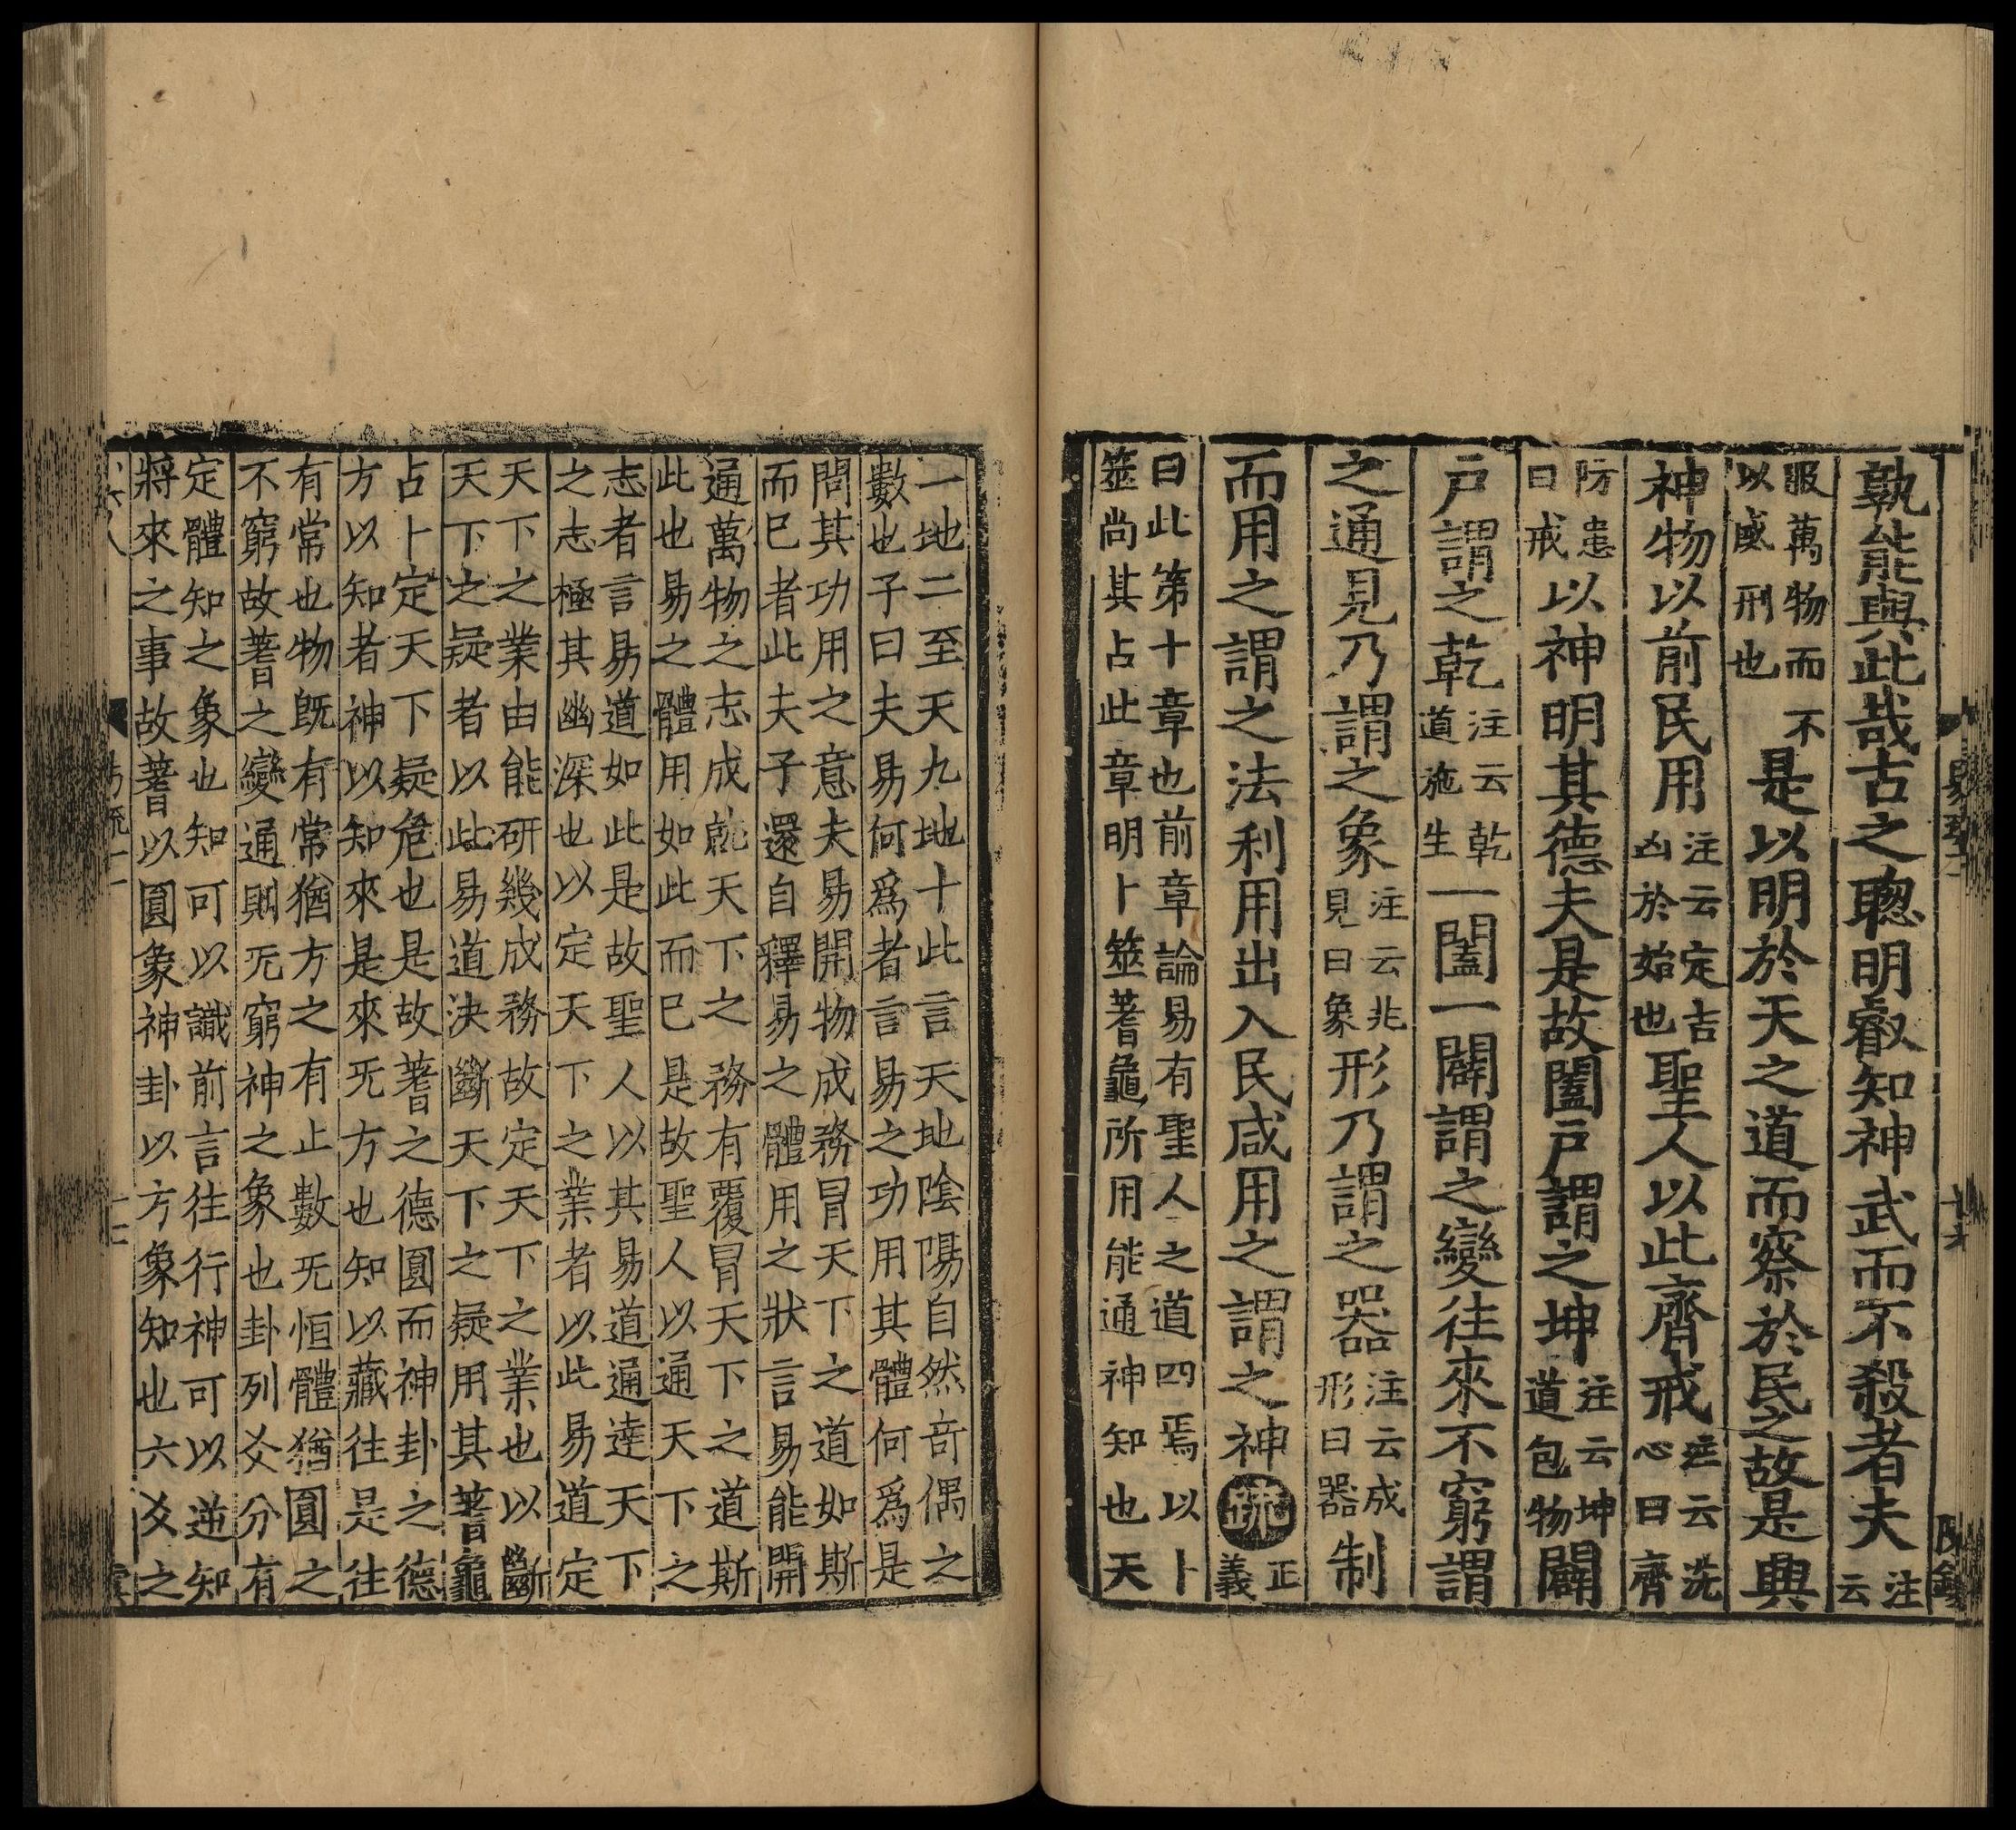 孰能與此哉古之聦明叡知神武而不殺者夫注云
服萬物而不以威刑也是以明於天之道而察於民之故是興
神物以前民用注云定吉凶於始也聖人以此齊戒注云洗心曰齊
防患曰戒以神明其德夫是故闔戶謂之坤注云坤道包物闢
戶謂之乾注云乾道施生一闔一闢謂之變往來不窮謂
之通見乃謂之象注云兆見曰象形乃謂之器注云成形曰器制
而用之謂之法利用出入民咸用之謂之神疏正義
曰此第十章也前章論易有聖人之道四焉以卜
筮尚其占此章明卜筮蓍龜所用能通神知也天
一地二至天九地十此言天地陰陽自然奇偶之
數也子曰夫易何爲者言易之功用其體何爲是
問其功用之意夫易開物成務冒天下之道如斯
而已者此夫子還自釋易之體用之狀言易能開
通萬物之志成就天下之務有覆冒天下之道斯
此也易之體用如此而已是故聖人以通天下之
志者言易道如此是故聖人以其易道通達天下
之志極其幽深也以定天下之業者以此易道定
天下之業由能研幾成務故定天下之業也以斷
天下之疑者以此易道決斷天下之疑用其蓍龜
占卜定天下疑危也是故蓍之德圓而神卦之德
方以知者神以知來是來旡方也知以藏往是往
有常也物既有常猶方之有止數旡恒體猶圓之
不窮故蓍之變通則旡窮神之象也卦列爻分有
定體知之象也知可以識前言往行神可以逆知
將來之事故蓍以圓象神卦以方象知也六爻之